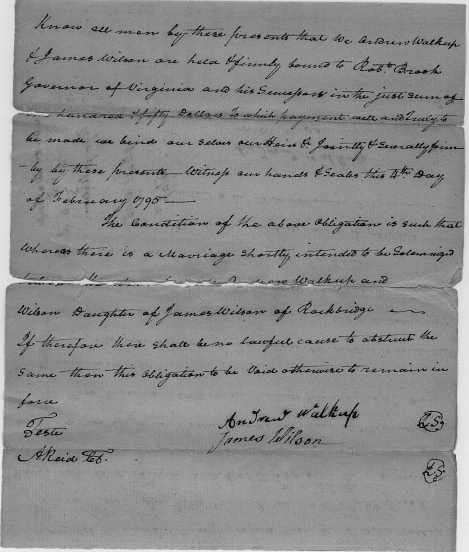 Know all men by these presents that we Andrew Walkup
& James Wilson are held & firmly bound to Robt. Brook
Governor of Virginia and his Successors in the just sum of
hundred & fifty Dollars To which payment well and truly to
be made we bind our selves our Heirs & Jointly & severally firm
-ly by these presents Witness our hands & Seales this 4th Day
of February 1795
The Condition of the above obligation is such that
Whereas there is a Marriage shortly intended to be Solemnized
Andrew Walkup and
Wilson Daughter of James Wilson of Rockbridge
If therefore there shall be no lawful cause to obstruct the
same then this obligation to be Void otherwise to remain in
force
Teste
Andrew Walkup LS
James Wilson
A Reid
LS